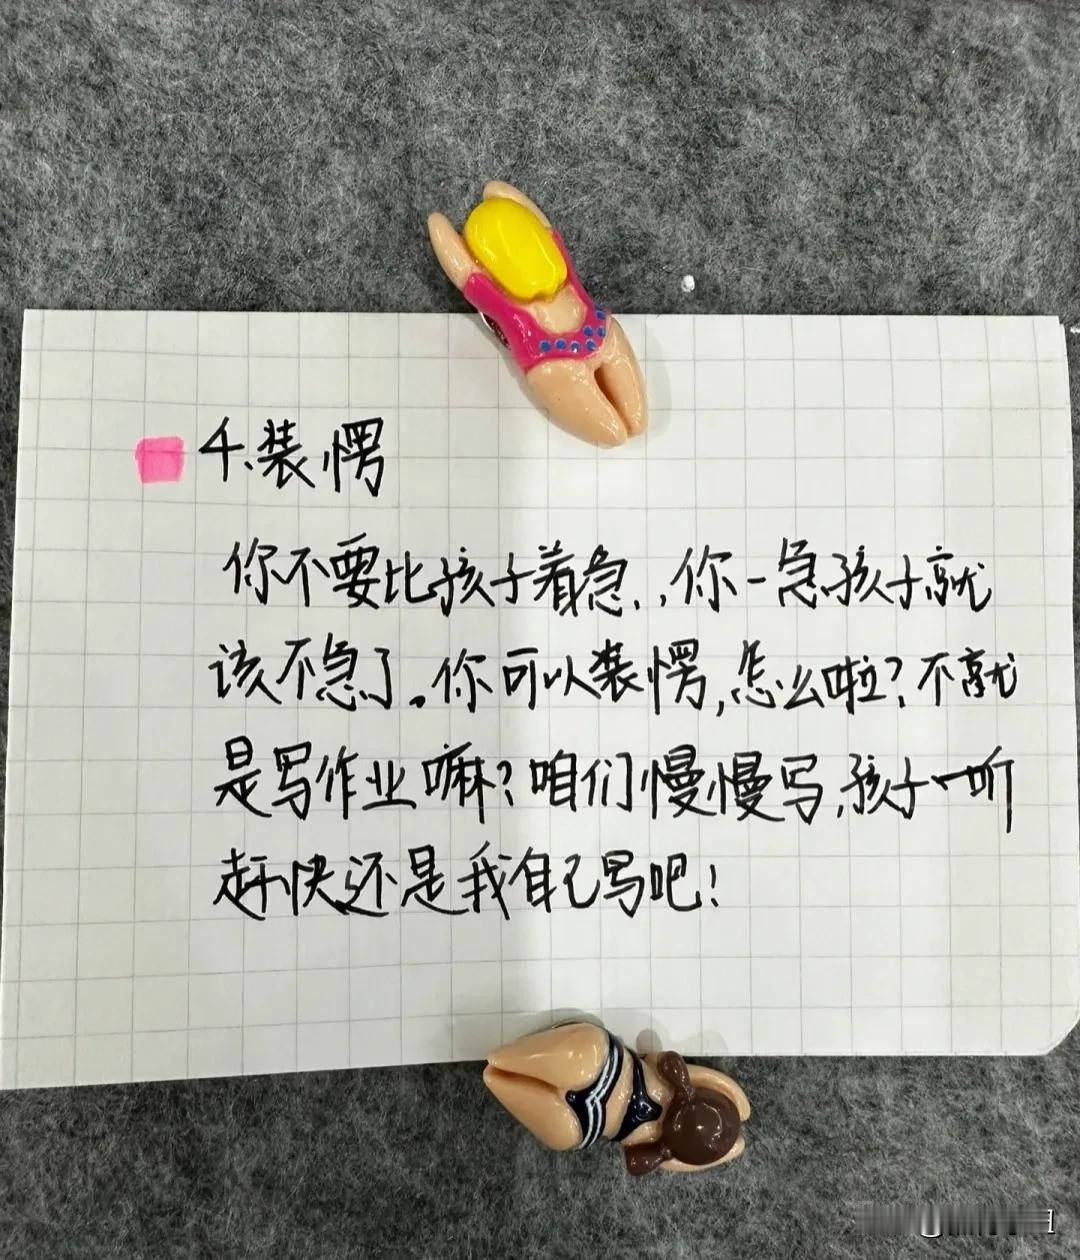 4、装愣
你不要比孩子着急.，你一急孩子就
该不急了。你可以装愣,怎么啦?不就
是写作业嘛?咱们慢慢写,孩子一听
赶快还是我自己写吧!